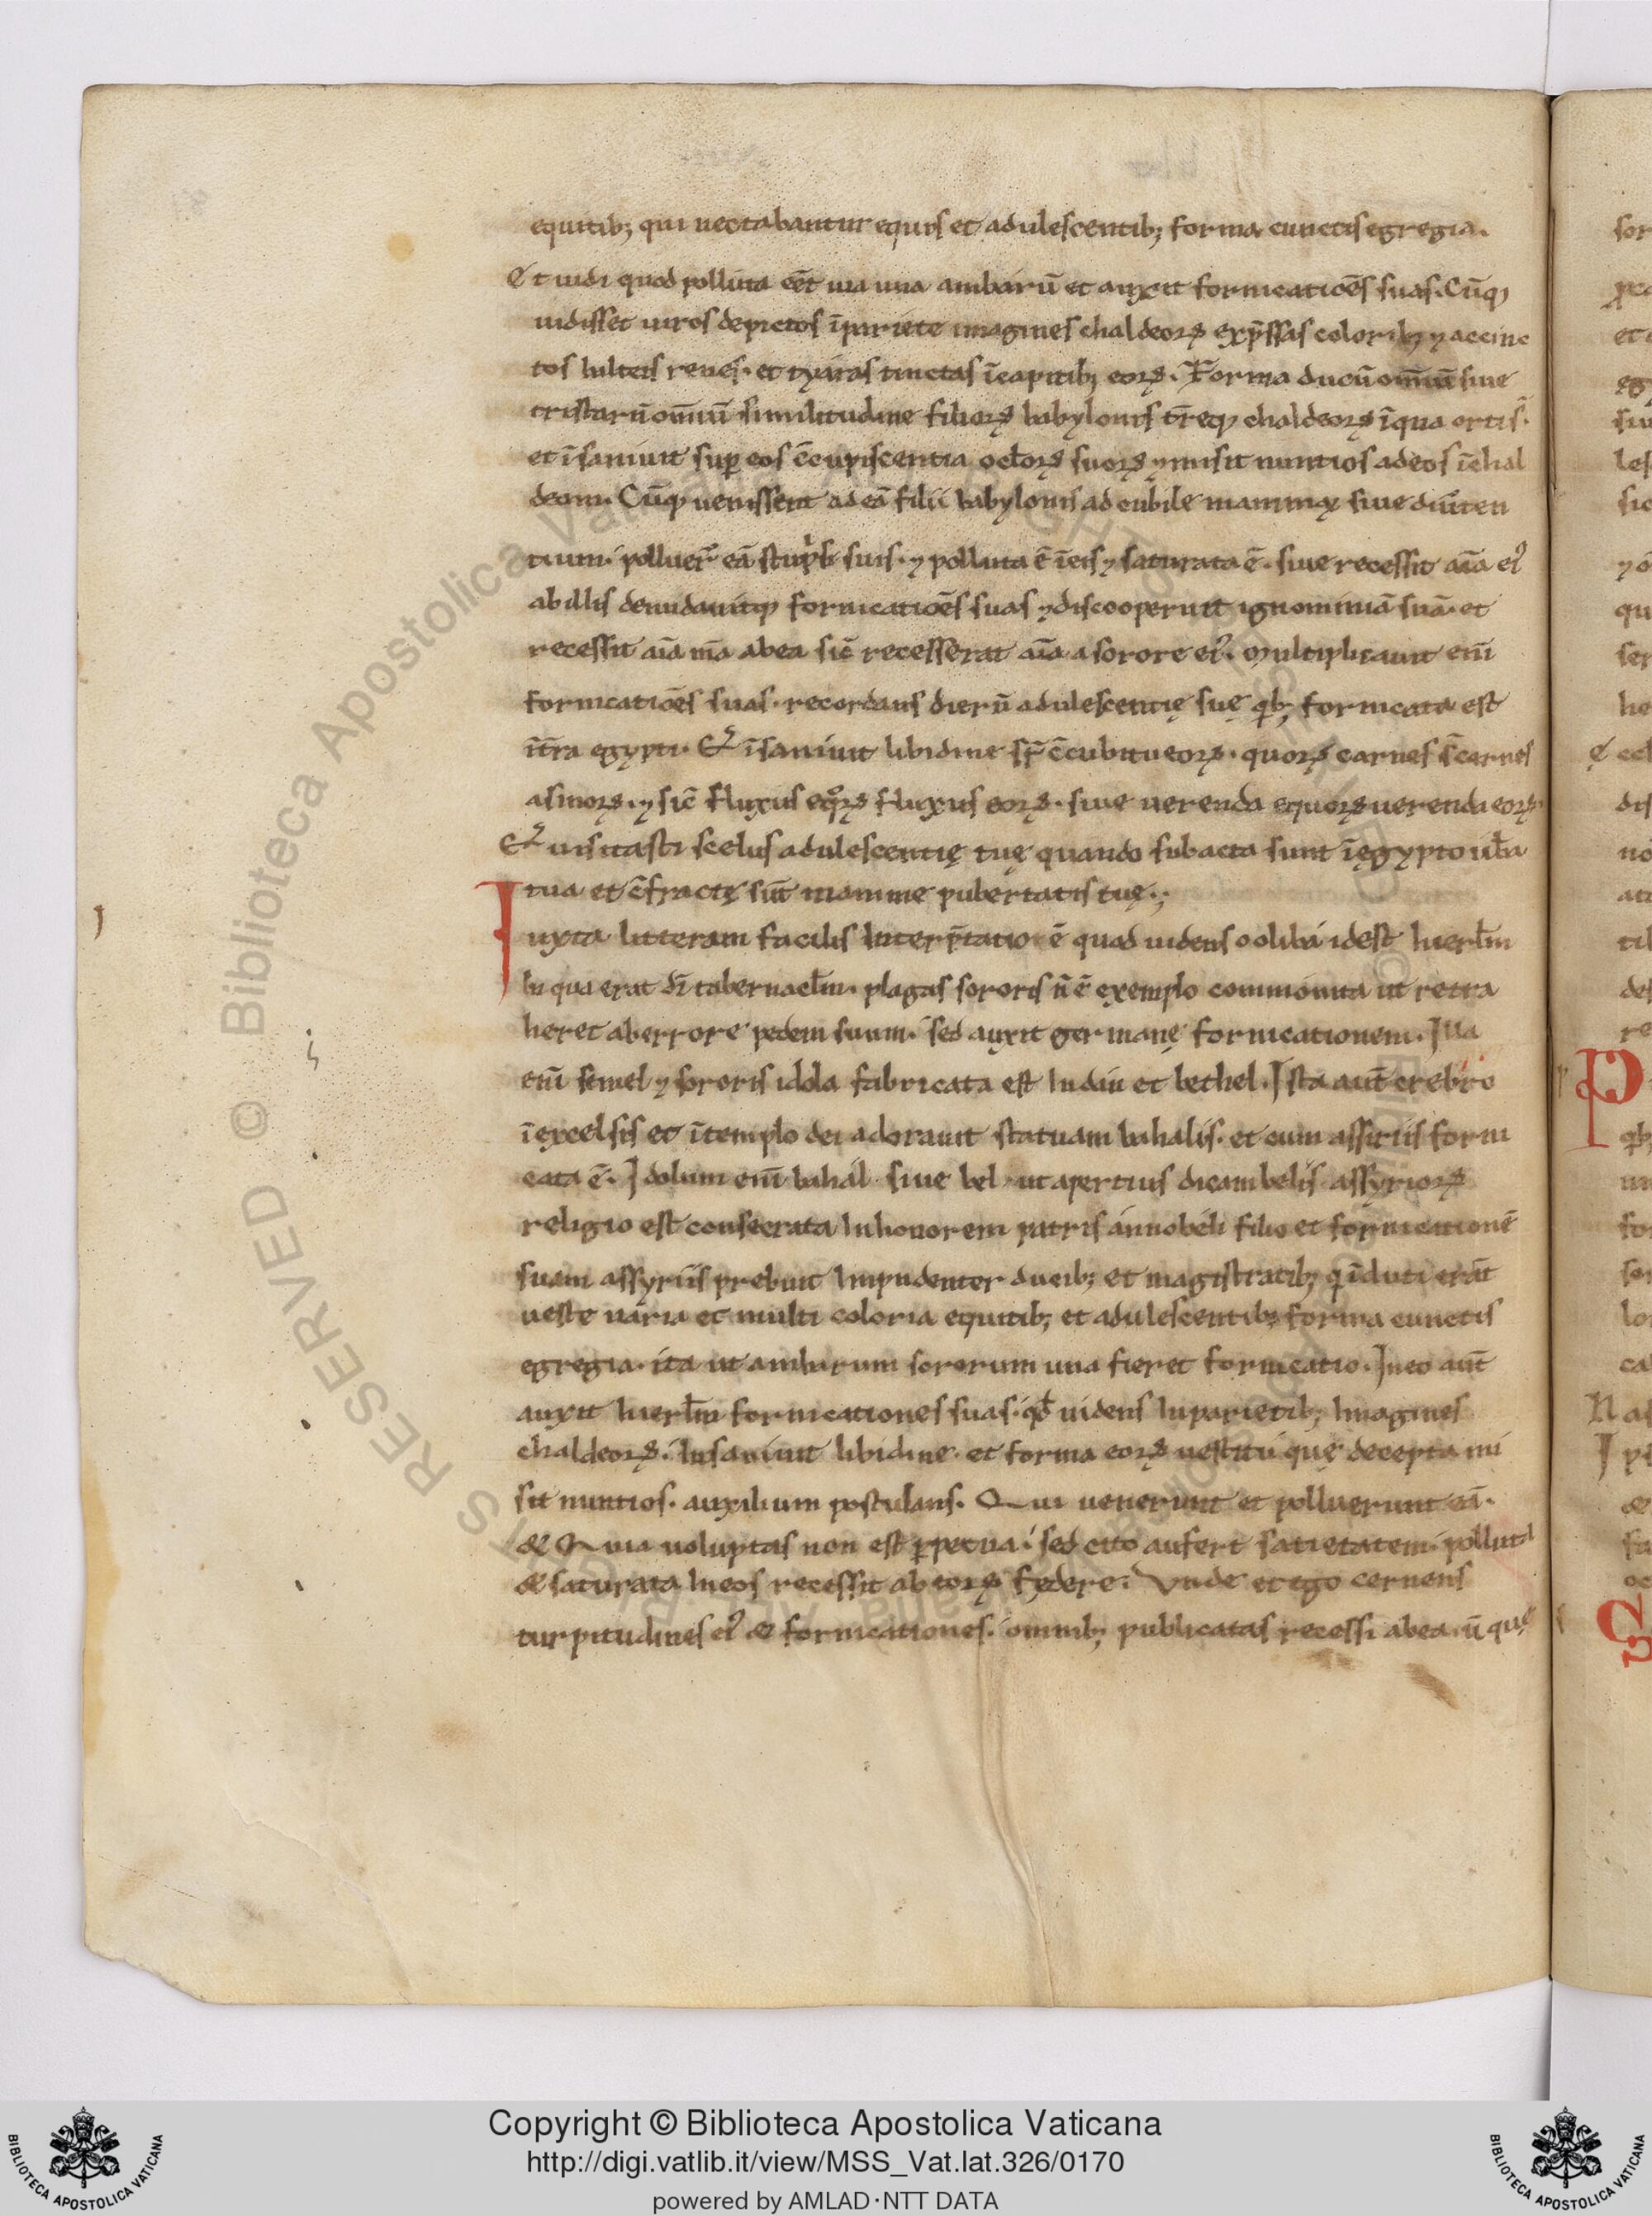 equitib; qui uectabantur equis et adulescentib; forma cunctis egregia.
Et uidi quod polluta eēt uia una ambarū et auxit fornicatiōes suas. Cūq;
uidisset uiros depictos īpariete imagines chaldeoꝝ exp̄ssas colorib; ⁊ accinc
tos balteis renes. et tyaras tinctas īcapitib; eoꝝ. Forma ducū omniū siue
tristarū omniū similitudine filioꝝ babylonis t̄req; chaldeoꝝ īqua orti s̄.
et īsaniuit sup eos c̄cupiscentia ocl̄oꝝ suoꝝ ⁊ misit nuntios adeos īchal
deam. Cūq; uenissent ad eā filii babylonis ad cubile mammaꝝ siue diu͞rten
tium. polluer̄ eā stup̄b suis. ⁊ polluta ē īeis ⁊ saturata ē. siue recessit aīa ei᷒
abillis denudauitq; fornicatiōes suas ⁊discooperuit ignominiā suā. et
recessit aīa m̄a abea sic̄ recesserat aīa asorore ei᷒. Multiplicauit enī
fornicatiōes suas. recordans dierū adulescentię suę qb; fornicata est
īt̄ra egypti. Et īsaniuit libidine sr̄ c̄cubitu eoꝝ. quoꝝ carnes s̄ carnes
asinoꝝ. ⁊ sic̄ fluxus eqͦꝝ fluxus eoꝝ. siue uerenda equoꝝ uerenda eoꝝ.
Et uisitasti scelus adulescentię tuę quando subacta sunt īęgypto ub̄a
tua et c̄fractę sūt mamme pubertatis tuę.;
Iuxta litteram facilis Interp̄tatio ē quod uidens ooliba idest hierl̄m
In qua erat dī tabernacl̄m. plagas sororis n̄ ē exemplo commonita ut retra
heret aberrore pedem suum. sed auxit germanę fornicationem. Illa
enī semel ⁊ sororis idola fabricata est Indan et bethel. Ista aut̄ crebro
īexcelsis et ītemplo dei adorauit statuam bahalis. et cum assiriis forni
cata ē. Idolum enī bahal siue bel ut apertius dicam belis assyrioꝝ
religio est consecrata Inhonorem patris anino beli filio et fornicationē
suam assyriis prebuit Impudenter ducib; et magistratib; q̄ īduti erāt
ueste uaria et multi coloria equitib; et adulescentib; forma cunctis
egregia. ita ut ambarum sororum una fieret fornicatio. Ineo aut̄
auxit hierl̄m fornicationes suas. qđ uidens Inparietib; Imagines
chaldeoꝝ. Insaniuit libidine. et forma eoꝝ uestituquę decepta mi
sit nuntios. auxilium postulans. Qui uenerunt et polluerunt eā.
& Quia uoluptas non est ꝑpetua. sed cito aufert satietatem. polluta
& saturata Ineos recessit ab eoꝝ fędere. Vnde et ego cernens
turpitudines ei᷒ & fornicationes. omnib; publicatas recessi abea. ū quę
Copyright © Biblioteca Apostolica Vaticana
http://digi.vatlib.it/view/MSS_Vat.lat.326/0170
powered by AMLAD·NTT DATA